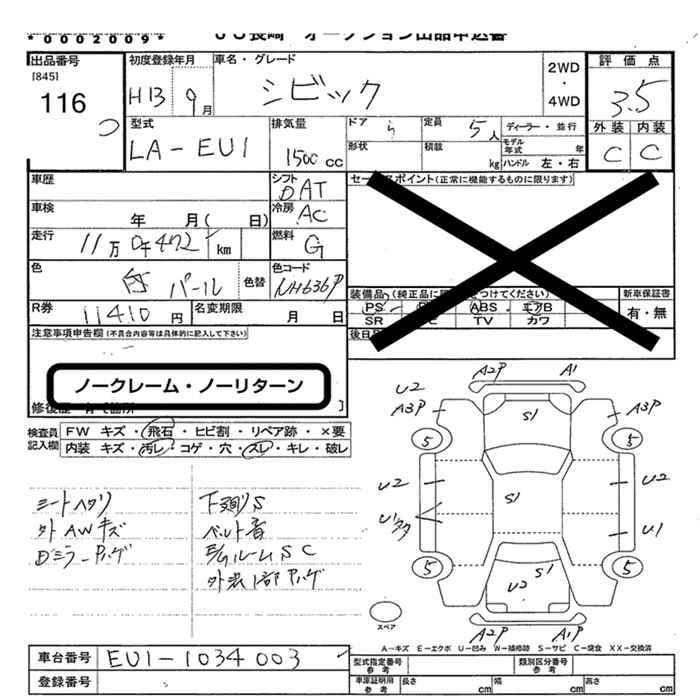 *0002009*
出品番号
[845]
116
初度登録年月
H13 9月
車名・グレード
シビック
2WD
・
4WD
評価点
3.5
外装 内装
C C
型式
LA-EU1
排気量
1500 cc
ドア 5
定員 5人
ディーラー・並行
形状
積載 kg
モデル年式 年
ハンドル 左・右
車歴
シフト
DAT
セールスポイント(正常に機能するものに限ります)
車検
年 月( 日)
冷房
AC
走行
11万0千472 km
燃料
G
色
白パール
色替
色コード
NH636P
装備品(純正品に
つけてください)
PS ABS エアB
SR TV カワ
新車保証書
有・無
R券
11410円
名変期限
月 日
後日
注意事項申告欄(不具合内容等は具体的に記入して下さい)
ノークレーム・ノーリターン
検査員
記入欄
FW キズ・飛石・ヒビ割・リペア跡・×要
内装 キズ・汚レ・コゲ・穴・スレ・キレ・破レ
シートヘタリ
外AWキズ
Dミラーハゲ
下廻りS
ベルト音
E/GルームSC
外装1部Pハゲ
A2P A1
U2
A3P A3P
S1
5 5
U2 U2
S1
U1
U1
5 5
S1
U2
A2P A1P
スペア
A-キズ E-エクボ U-凹み W-補修跡 S-サビ C-腐食 XX-交換済
車台番号
EU1-1034003
登録番号
型式指定番号
参考
類別区分番号
参考
車庫証明用
参考
長さ cm
幅 cm
高さ cm